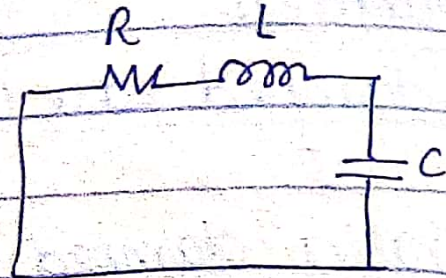 R L
C